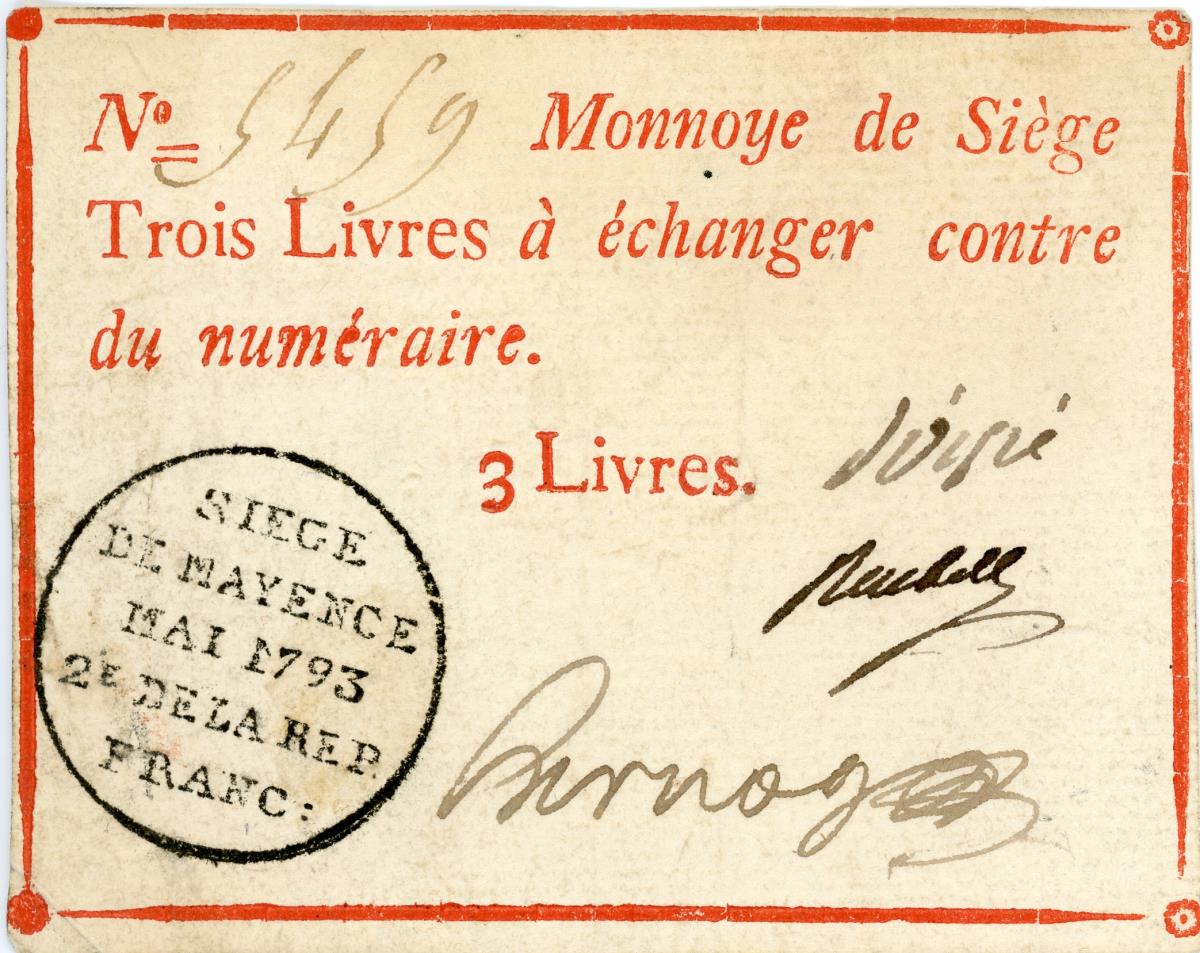 No 5459 Monnoye de Siège
Trois Livres à échanger contre
du numéraire.
3 Livres.
Reubell
SIEGE
DE MAYENCE
MAI 1793
2E DE LA REP.
FRANC: